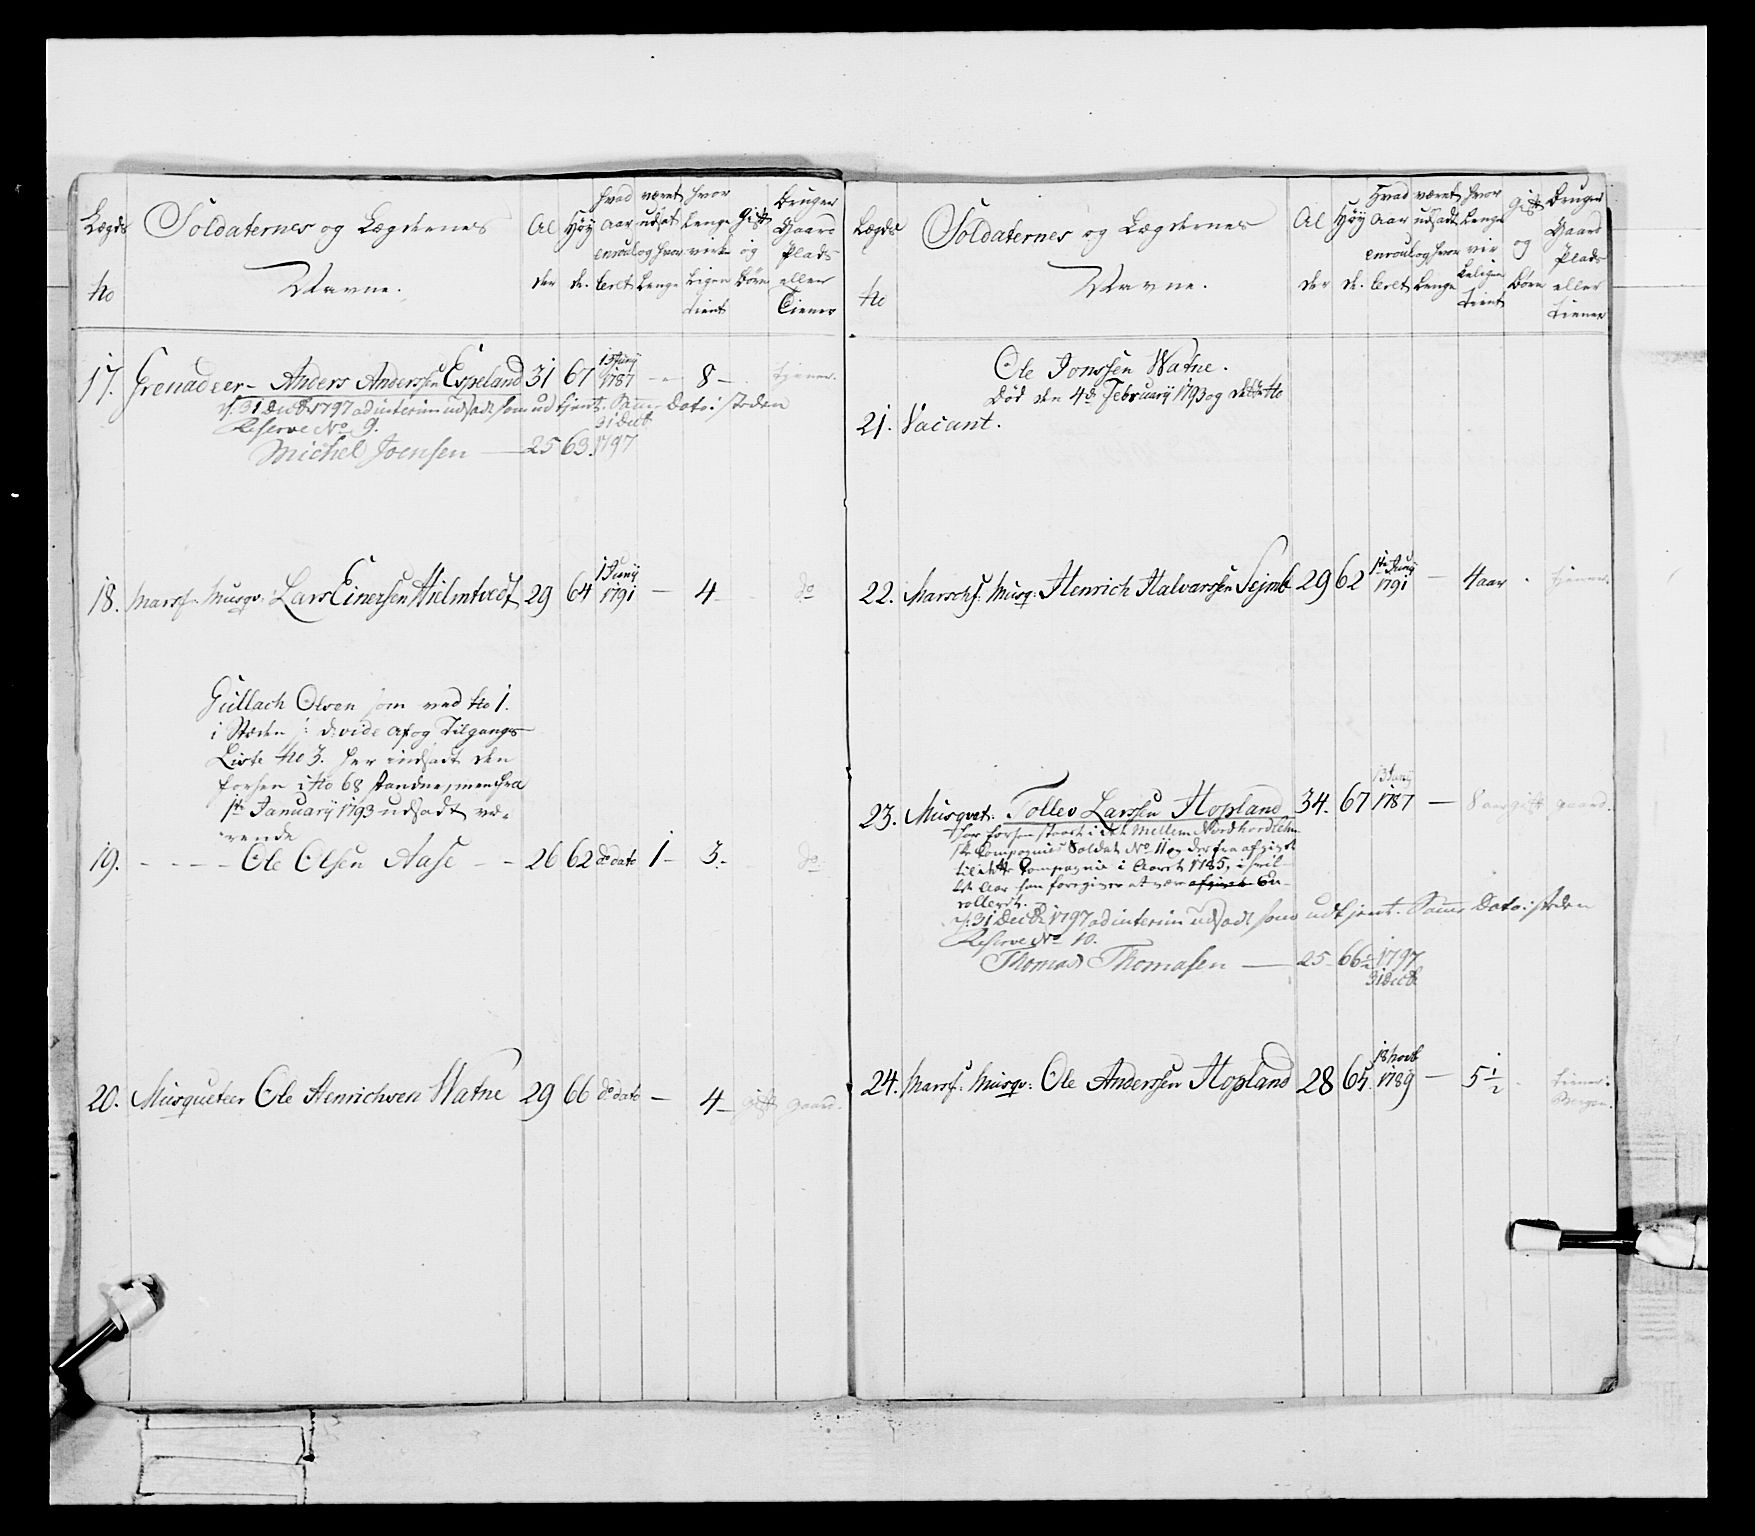 Lægds No
Soldaternes og Lægdernes Navne.
Alder
Høyde.
hvad Aar enroulleret
været udsat og hvor lenge
hvor lenge virkeligen tient
Gift og Børn
Bruger Gaard Plads eller Tiener
17. Grenadeer - Anders Anderssen Espeland 31 67 1 Juny 1787 - 8 - tiener.
d: 31 Decbr 1797 ad interim udsadt som udtjent. Samme Dato i steden
Reserve No 9.
Michel Joensen — 25 63. 31 Decbr 1797
18. Marsk: Musqv: Lars Einersen Hielmtvedt 29 64 1 Juny 1791 — 4 - do
Gullach Olsen som ved No 1.
i Stæden d: vide Af og Tilgangs
Liste No 3. her indsadt den
forhen i No 68 standne, men fra
1ste January 1793 udsadt væ-
rende
19. - - - - Ole Olsen Aase - - 26 62 do dato 1 - 3. do
20. Musqueteer Ole Henrichsen Watne 29 66 do dato — 4 - gift gaard.
Lægds No
Soldaternes og Lægdernes Navne.
Alder
Høyde.
hvad Aar enroulleret
været udsadt og hvor lenge
hvor lenge virkeligen tient
Gift og Børn
Bruger Gaard Plads eller tiener
Ole Jonssen Watne.
Død den 4de February 1793 og dette No
21. Vacant.
22. Marsch: Musq: Henrich Halvorssen Sejm 29 62 1ste Juny 1791 — 4 aar - tiener.
23. Musqvet: Tollev Larssen Hopland 34. 67 1 Juny 1787 — 8 aar gift gaard.
har forhen staaet i det Mellem Nordhordlehn-
ske Compagnie Soldat No 11 og derfra afgivet
til dette Compagnie i Aaret 1785, i hvil-
ket Aar han foregiver at være afgivet En-
rollerdt.
d: 31 Decbr 1797 ad interim udsadt som udtjent. Samme Dato i steden
Reserve No 10.
Thomas Thomasen — 25 - 66 1/2 1797 31 Decbr
24. Marsk: Musqv: Ole Anderssen Hopland 28 65. 18 Novbr 1789 — 5 1/2 - tiener i Bergen.